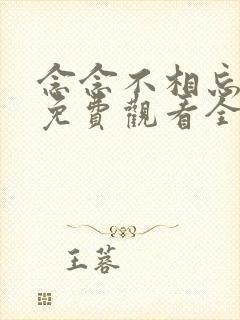 念念不相忘
免費觀看全
王蓉